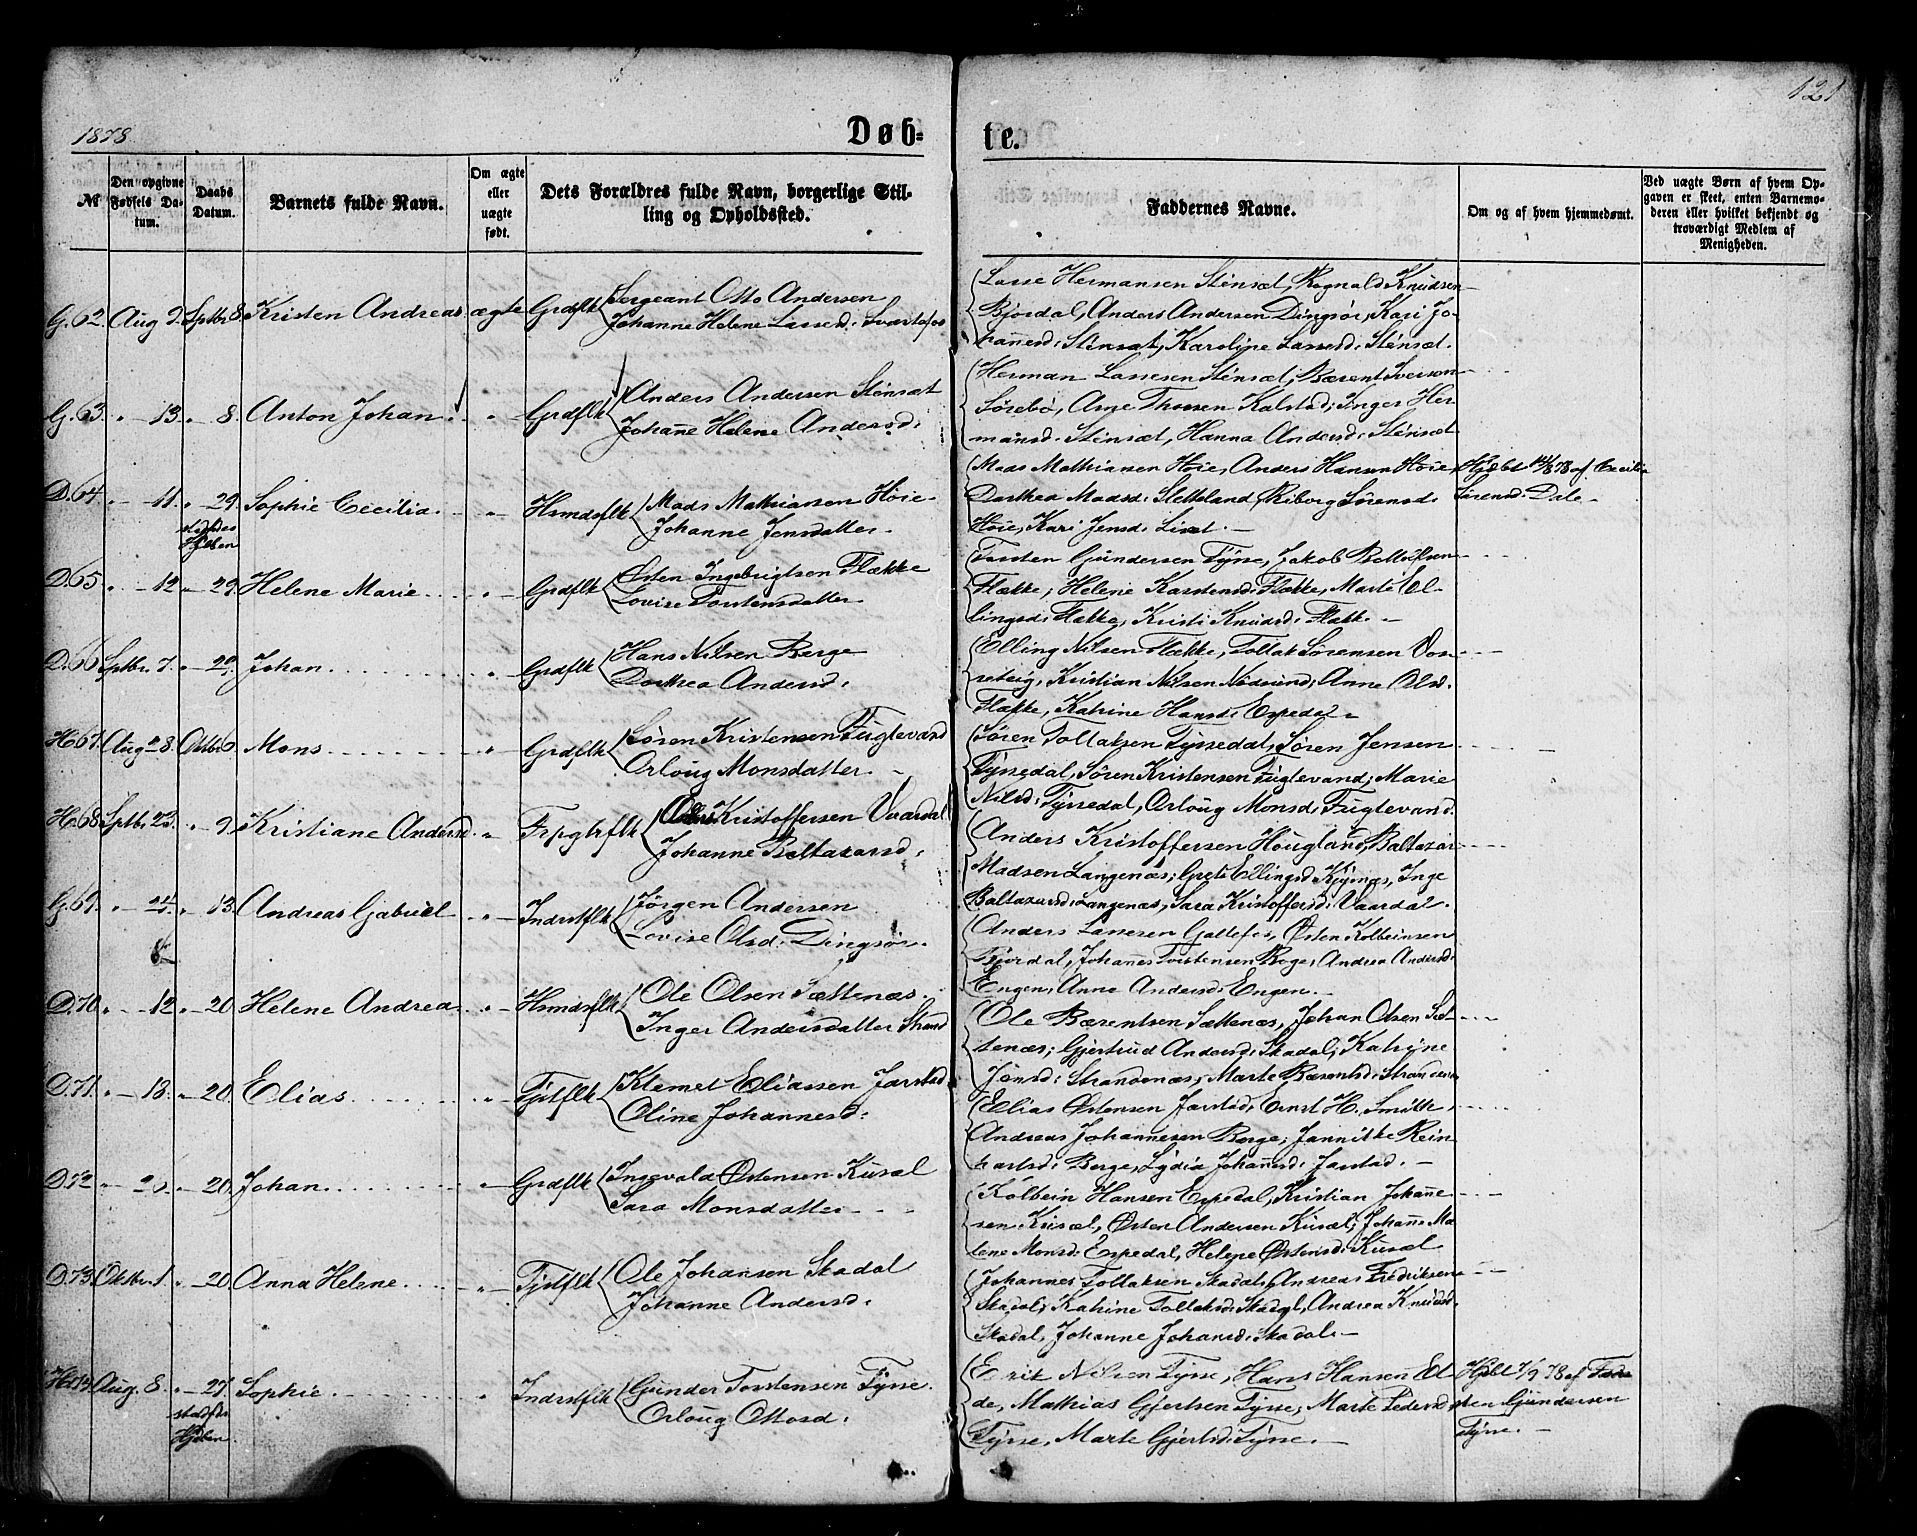 121
1878
Døb- te.
№
Den opgivne Fødsels Datum.
Daabs Datum.
Barnets fulde Navn.
Om ægte eller uægte født.
Dets Forældres fulde Navn, borgerlige Stilling og Opholdsted.
Faddernes Navne.
Om og af hvem hjemmedøbt.
Ved uægte Børn af hvem Opgaven er skeet, enten Barnemoderen eller hvilket bekjendt og troværdigt Medlem af Menigheden.
G. 62. Aug 9. Septbr 8. Kristen Andreas. ægte Grdflk Sergeant Otto Andersen
Johanne Helene Lassesd: Svartefos
Lasse Hermansen Stensæt, Rognald Knudsen
Bjordal, Anders Andersen Dingsør, Kari Jo-
hannesd: Stensæt, Karoline Lassesd: Stensæt.
G. 63. " - 13. " 8. Anton Johan. " Grdflk Anders Andersen Stensæt
Johanne Helene Andersd:
Herman Lassesen Stensæt, Bærent Iversen
Sørebø, Arne Thoesen Kalstad; Inger Her-
mansd: Stensæt, Hanna Andersd: Stensæt
D. 64. " - 11. " 29. Sophie Cecilia. " Hsmdsflk Mads Mathiassen Høie
stadfæs Hjdben
Johanne Jensdatter.
Mads Mathiasen Høie, Anders Hansen Høie,
Dorthea Madsd: Sletteland, Riborg Sørensd:
Høie, Kari Jensd: Liset. -
Hjdbt 14/8 78 af Cecilia
Sørensd: Dale -
D. 65. " - 12 " 29. Helene Marie. " Grdflk Østen Ingebrigtsen Flække
Lovise Torstensdatter
Torsten Gundersen Tysse, Jakob
Flække, Helene Karstensd: Flække, Marte El-
lingsd: Flække, Kristi Knudsd: Flækk. -
D. 66. Septbr. 7. " 29. Johan. " Grdflk Hans Nilsen Berge
Dorthea Andersd:
Elling Nilsen Flække, Tollak Sørensen Vos-
seteig, Kristian Nilsen Nødsund; Anne Olsd:
Flække, Katrine Hansd: Espedal -
H. 67. Aug 28. Oktbr 6. Mons " Grdflk Søren Kristensen Fuglevand
Orloug Monsdatter. -
Søren Tollaksen Tyssedal, Søren Jensen
Tyssedal, Søren Kristensen Fuglevand; Marie
Nilsd: Tyssedal, Orloug Monsd: Fuglevand.
H. 68. Septbr. 23. " 9. Kristiane Andersd " Frpgtrflk Kristoffersen Vaardal
Johanne Baltazarsd:
Anders Kristoffersen Hougland, Baltazar
Madsen Langenæs; Grete Ellingsd Kjynæs, Inge
Baltazarsd: Langenæs, Sara Kristoffersd: Vaardal.
G. 69. " 24. " 13. Andreas Gabriel " Indrstflk Jørgen Andersen
Lovise Olsd: Dingsør.
Anders Lassesen Gallefos, Østen Kolbeinsen
Fjordal, Johannes Torstensen Boge; Andrea Andersd:
Engen, Anne Andersd: Engen. -
D. 70. " - 12. " 20. Helene Andrea " Hsmdsflk Ole Olsen Sættenæs.
Inger Andersdatter Strand
Ole Bærentsen Sættenæs, Johan Olsen Sæt-
tenæs; Gjertrud Andersd: Skadal; Katrine
Jonsd: Strandenæs, Marte Bærentsd: Strandenæs
D. 71. " - 13. " 20. Elias " Tjstflk Klemet Eliassen Jarstad
Oline Johannesd:
Elias Østensen Jarstad, Ernst H. Smith,
Andreas Johannesen Berge; Jannikke Rein-
hartsd: Berge, Lydia Johannesd: Jarstad. -
D. 72 " - 20. " 20. Johan. " Grdflk Ingevald Østensen Kusæl
Sara Monsdatter
Kolbein Hansen Espedal, Kristian Johanne-
sen Kusæl, Østen Andersen Kusæl; Johanne Ma-
lene Monsd: Espedal, Helene Østensd: Kusæl
D. 73. Oktbr. 1. " 20. Anna Helene. " Tjstflk Ole Johansen Skadal
Johanne Andersd:
Johannes Tollaksen Skadal, Andreas Fredriksen
Skadal; Katrine Tollaksd: Skadal, Andrea Knudsd:
Skadal, Johanne Johansd: Skadal. -
H. Aug. 8. " 27. Sophie. " Indrstflk Gunder Torstensen Tysse.
stadfæs Hjdben.
Orloug Ottosd:
Erik Nilsen Tysse, Hans Hansen El-
de, Mathias Gjertsen Tysse; Marte Pedersd:
Tysse, Marte Gjertsd: Tysse. -
Hjdbt 1/9 78 af Tors-
ten Gundersen
Tysse. -